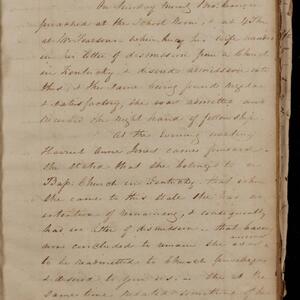 On Sunday
preached at the School Room, & at 4 PM
at Mr Pearsons when his wife handed
in her letter of dismission from a Church
in Kentucky & desired admission into
this, & the same being found regular
& satisfactory, she was admitted and
received the right hand of fellowship
At the evening meeting
Harriet Anne Jones came forward
She stated that she belonged to a
Bap. Church in Kentucky, that when
she came to this State she had no
intention of remaining, & consequently
had no letter of dismission, that having
now concluded to remain she
to be readmitted to Church privileges
& desired to join us. She at the
same time related something of her